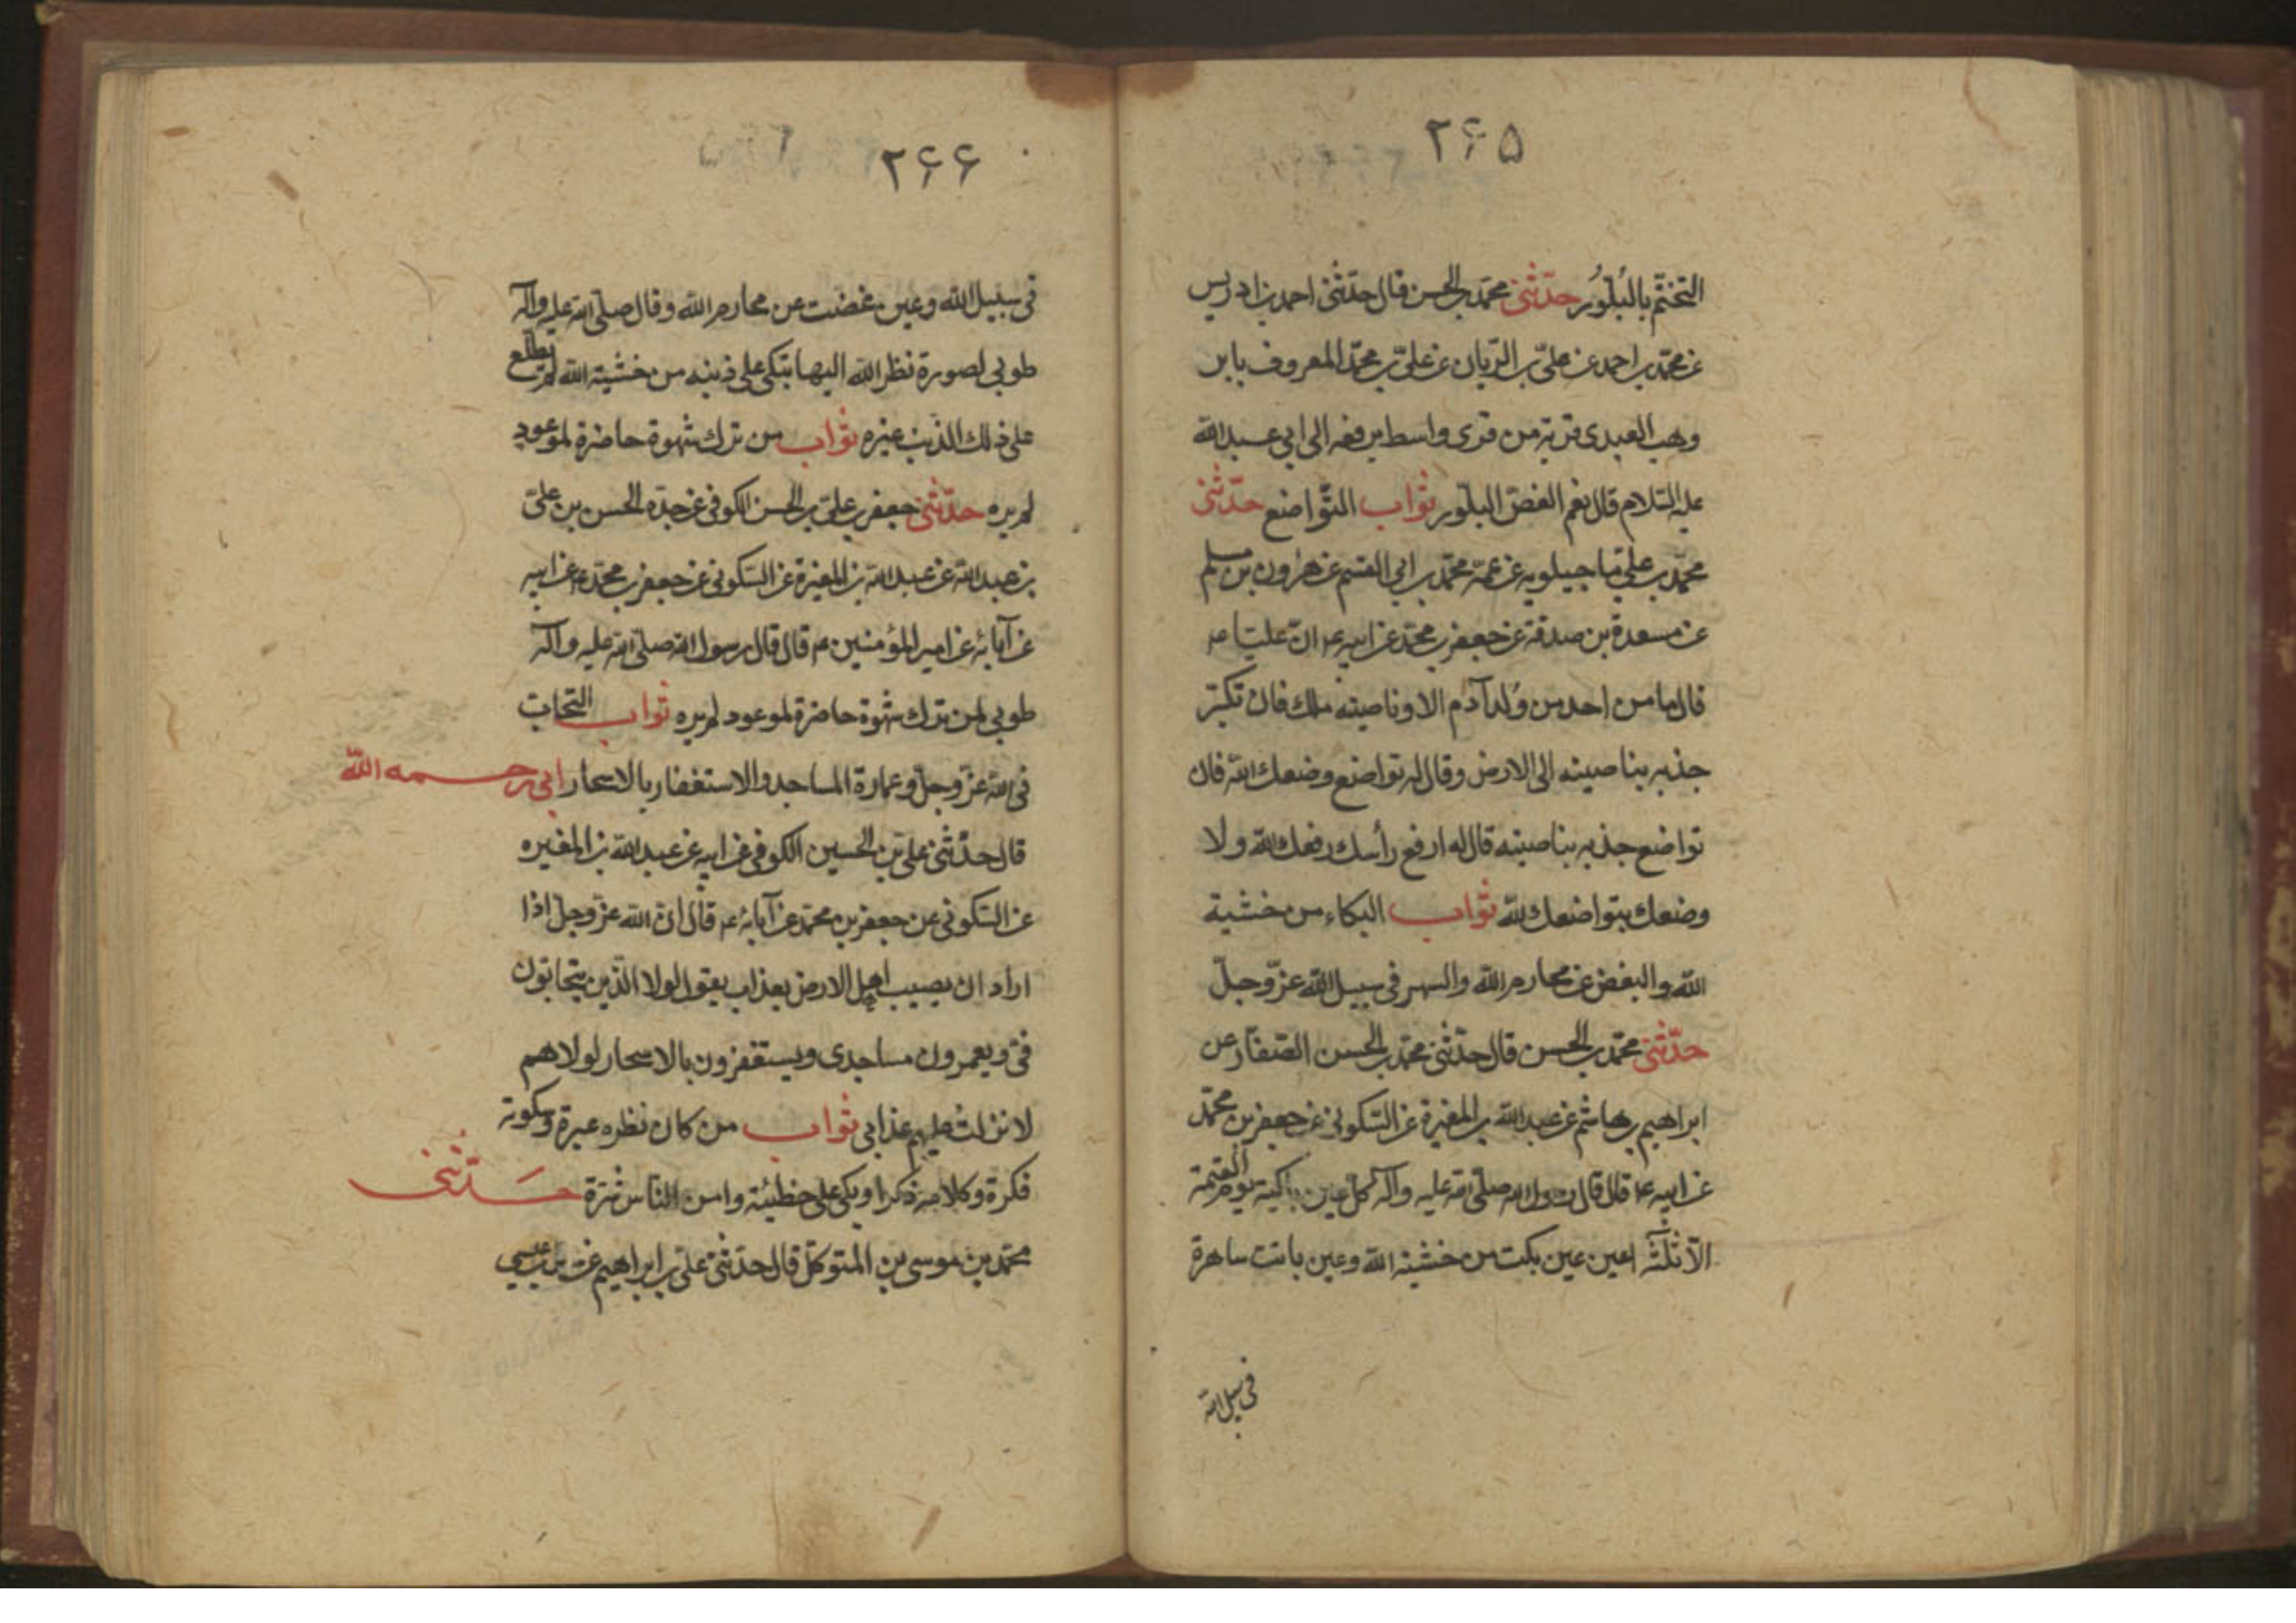 ۲۶۵
التختّم بالبُلّوُر حدّثنی محمّد بن الحسن قال حدّثنی احمد بن ادریس
عن محمّد بن احمد عن علیّ بن الرّیان عن علیّ بن محمّد المعروف بابن
وهب العبدی قریة من قری واسط یرفعه الی ابی عبدالله
علیه السّلام قال نعم الفصّ البلّور ثواب التّواضع حدّثنی
محمّد بن علی ماجیلویه عن عمّه محمّد بن ابی القسم عن هٰرون بن مسلم
عن مسعدة بن صدقة عن جعفر بن محمّد عن ابیه ع انّ علیّا ع
قال ما من احد من وُلد آدم الا و ناصیته ملک فان تکبّر
جذبه بناصیته الی الارض وقال له تواضع وضعک الله فان
تواضع جذبه بناصیته قال له ارفع رأسک رفعک الله ولا
وضعک بتواضعک لله ثواب البکاء من خشیة
الله والبغض عن محارم الله والسهر فی سبیل الله عزّ وجلّ
حدّثنی محمّد بن الحسن قال حدّثنی محمّد بن الحسن الصّفّار عن
ابراهیم بن هاشم عن عبدالله بن المغیرة عن السّکونی عن جعفر بن محمّد
عن ابیه ع قال قال رسول الله صلّی الله علیه وآله کلّ عین باکیة یوم القیمة
الّا ثلٰثة اعین عین بکت من خشیة الله وعین باتت ساهرة
فی سبیل الله
۲۶۶
فی سبیل الله وعین غضت عن محارم الله وقال صلّی الله علیه وآله
طوبی لصورة نظر الله الیها تبکی علی ذنبه من خشیة الله لم یطّلع
علی ذلک الذنب غیره ثواب من ترک شهوة حاضرة لموعود
لم یره حدّثنی جعفر بن علیّ بن الحسن الکوفی عن جدّه الحسن بن علیّ
بن عبدالله عن عبدالله بن المغیرة عن السّکونی عن جعفر بن محمّد ع عن ابیه
عن آبائه عن امیر المؤمنین ع قال قال رسول الله صلّی الله علیه وآله
طوبی لمن ترک شهوة حاضرة لموعود لم یره ثواب التّحابّ
فی الله عزّ وجلّ وعمارة المساجد والاستغفار بالاسحار ابی رحمه الله
قال حدّثنی علی بن الحسین الکوفی عن ابیه عن عبدالله بن المغیره
عن السّکونی عن جعفر بن محمّد عن آبائه ع قال انّ الله عزّ وجلّ اذا
اراد ان یصیب اهل الارض بعذاب یقول لولا الّذین یتحابّون
فیّ ویعمرون مساجدی ویستغفرون بالاسحار لولاهم
لانزلت علیهم عذابی ثواب من کان نظره عبرة وسکوته
فکرة وکلامه ذکرا وبکی علی خطیئته وامن النّاس شرّه حدّثنی
محمّد بن موسی بن المتوکّل قال حدّثنی علیّ بن ابراهیم عن بن عیسی